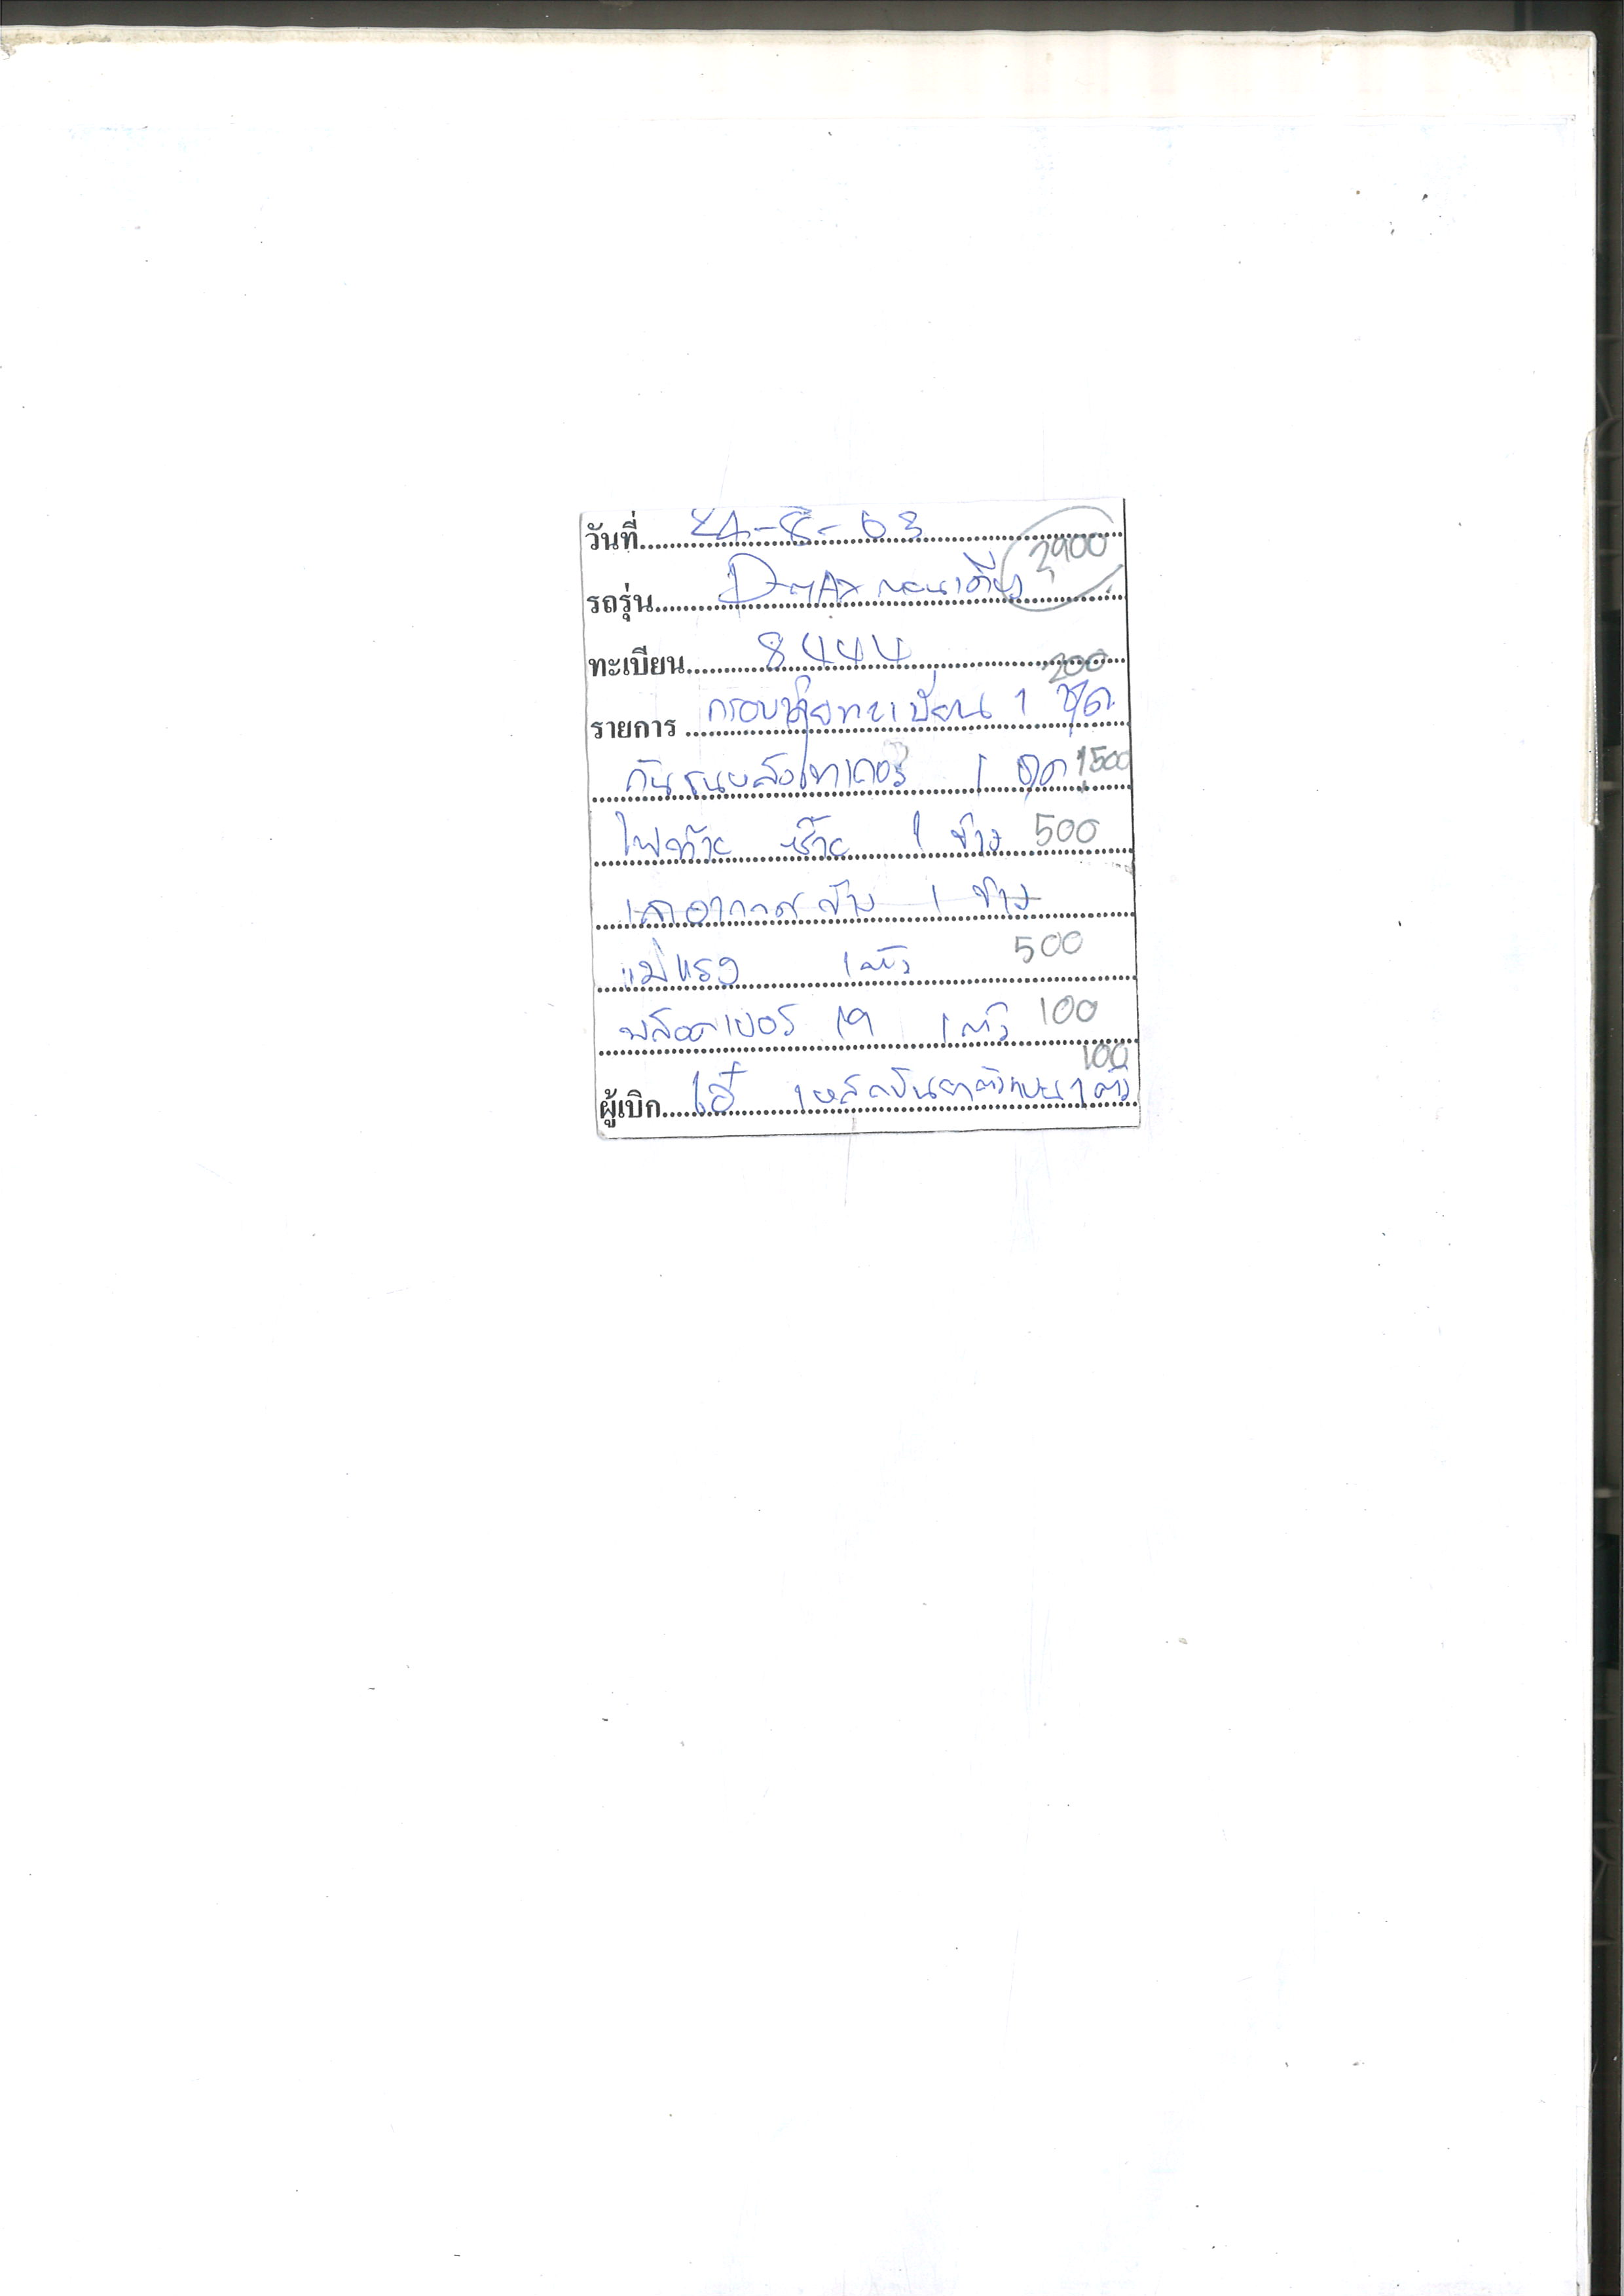 วันที่ 24-8-63
2,900
รถรุ่น D-MAX ตอนเดียว
ทะเบียน 8444
200
รายการ กรอบป้ายทะเบียน 1 ชุด
กันชนหลัง 1 ชุด 1500
ไฟท้าย ซ้าย 1 ข้าง 500
เสาอากาศข้าง 1 ข้าง
แม่แรง 1 ตัว 500
บล็อกเบอร์ 19 1 ตัว 100
100
ผู้เบิก 1 ตัว